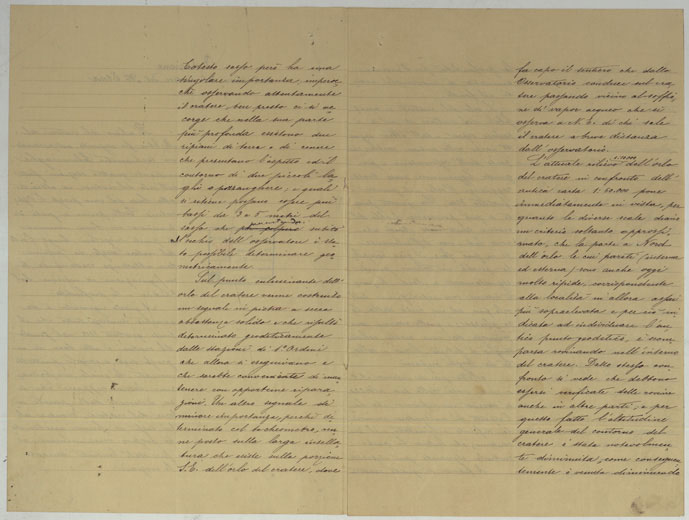 Cotesto sasso però ha una
singolare importanza imperoc-
chè osservando attentamente
il cratere, ben presto ci si ac
corge che nella sua parte
più profonda esistono due
ripiani di terra e di cenere
che presentano l'aspetto ed il
contorno di due piccoli la-
ghi o pozzanghere; e quali
si ritiene possano essere più
bassi da 3 a 5 metri del
sasso che subito
l'occhio dell'osservatore è sta
to possibile determinare geo
metricamente.
Sul punto culminante dell'
orlo del cratere venne costruito
un segnale in pietra a secco
abbastanza solido e che risultò
determinato geodeticamente
dalle stazioni di 1° Ordine
che allora si eseguivano e
che sarebbe conveniente di man
tenere con opportune ripara
zioni. Un altro segnale di
minore importanza, perchè de
terminato col tacheometro, ven
ne posto sulla larga insella
tura che esiste nella porzione
S.E. dell'orlo del cratere, dove
fa capo il sentiero che dallo
Osservatorio conduce sul cra
tere passando vicino al soffio
ne di vapor acqueo che si
osserva a N.E. di chi sale
il cratere a breve distanza
dall'osservatorio.
1:10.000
L'attuale rilievo dell'orlo
del cratere in confronto dell'
antica carta 1:50.000 pone
immediatamente in vista, per
quanto le diverse scale diano
un criterio soltanto approssi
mato, che la parte a Nord
dell'orlo le cui pareti (interna
ed esterna) sono anche oggi
molto ripide, corrispondente
alla località in allora assai
più sopraelevata e per ciò in
dicata ad individuare l'an
tico punto geodetico, è scom
parsa rovinando nell'interno
del cratere. Dallo stesso con
fronto si vede che debbono
essersi verificate delle rovine
anche in altre parti, e per
questo fatto l'altitudine
generale del contorno del
cratere è stata notevolmen
te diminuita, come conseguen
temente è venuta diminuendo